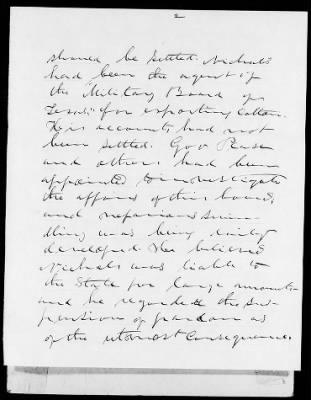 2
should be settled. Nichols
had been the agent of
the Military Board of
Texas for exporting Cotton.
His accounts had not
been settled. Gov Pease
and others had been
appointed to investigate
the affairs of this board,
and nefarious swin-
dling was being daily
developed. He believed
Nichols was liable to
the State for large amounts
and he regarded the sus-
pensions of pardon as
of the utmost consequence.